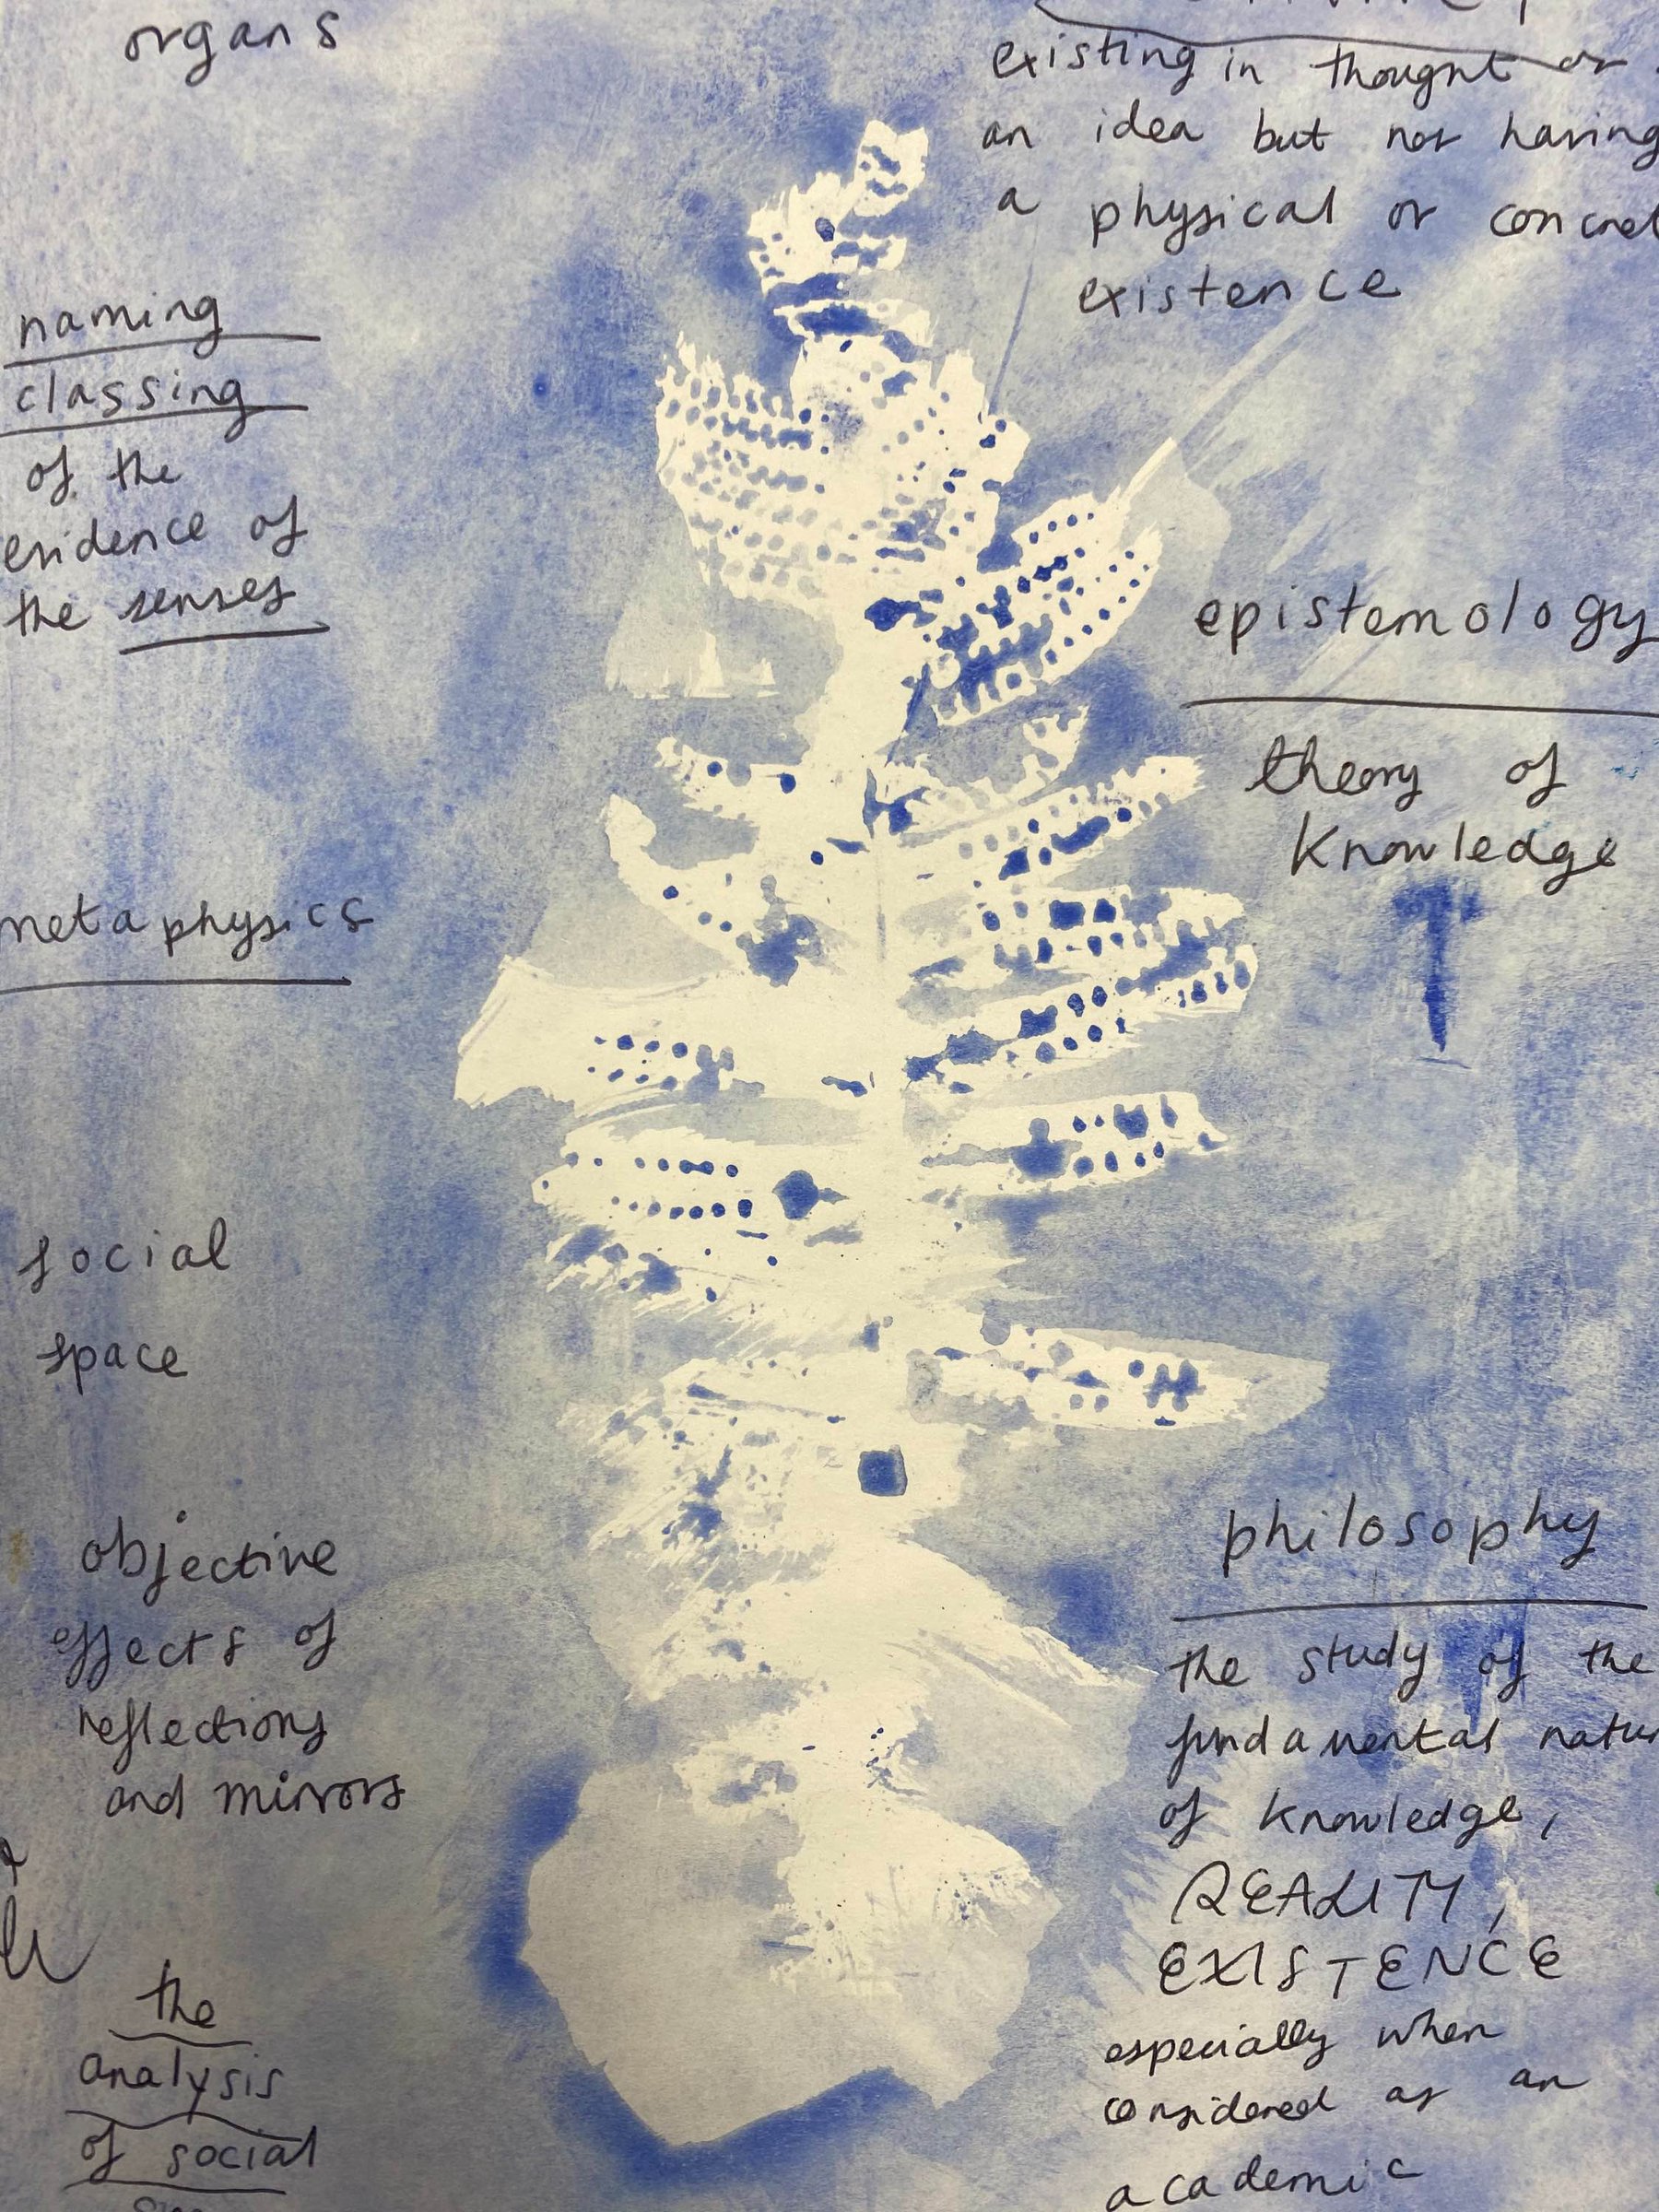 organs
naming
classing
of the
evidence of
the senses
metaphysics
social
space
objective
effects of
reflections
and mirrors
the
analysis
of social
existing in thought or
an idea but not having
a physical or concret
existence
epistemology
theory of
knowledge
philosophy
the study of the
fundamental natur
of knowledge,
REALITY,
EXISTENCE
especially when
considered as an
academic